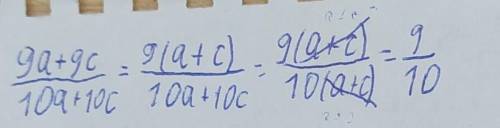 (9a+9c)/(10a+10c) = 9(a+c)/(10a+10c) = 9(a+c)/10(a+c) = 9/10